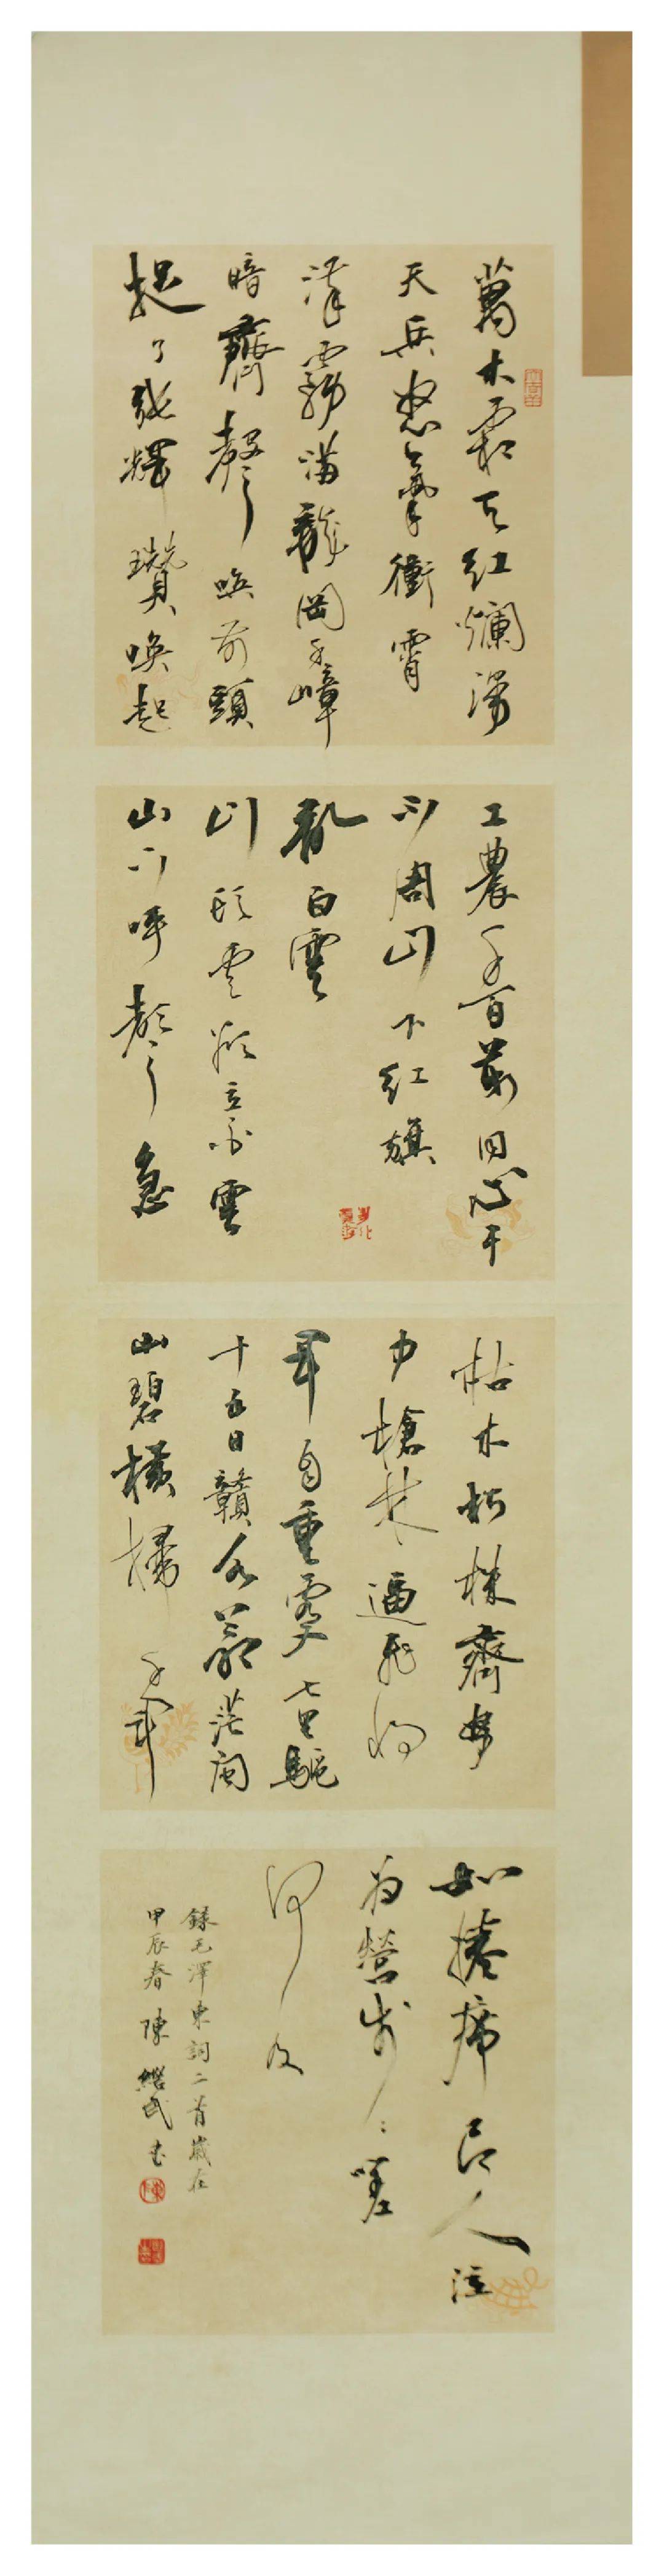 萬木霜天紅爛漫
天兵怒氣衝霄
漢霧滿龍岡千嶂
暗齊聲喚前頭
捉了張輝瓚喚起
工農千百萬同心干
不周山下紅旗
亂白雲
山頭雲欲立白雲
山下呼聲急
枯木朽株齊努
力槍林逼飛將
軍自重霄入七百里驅
十五日贛水蒼茫閩
山碧橫掃千軍
如捲席有人泣
為營步〻嗟
何及
錄毛澤東詞二首歲在
甲辰春陳武書